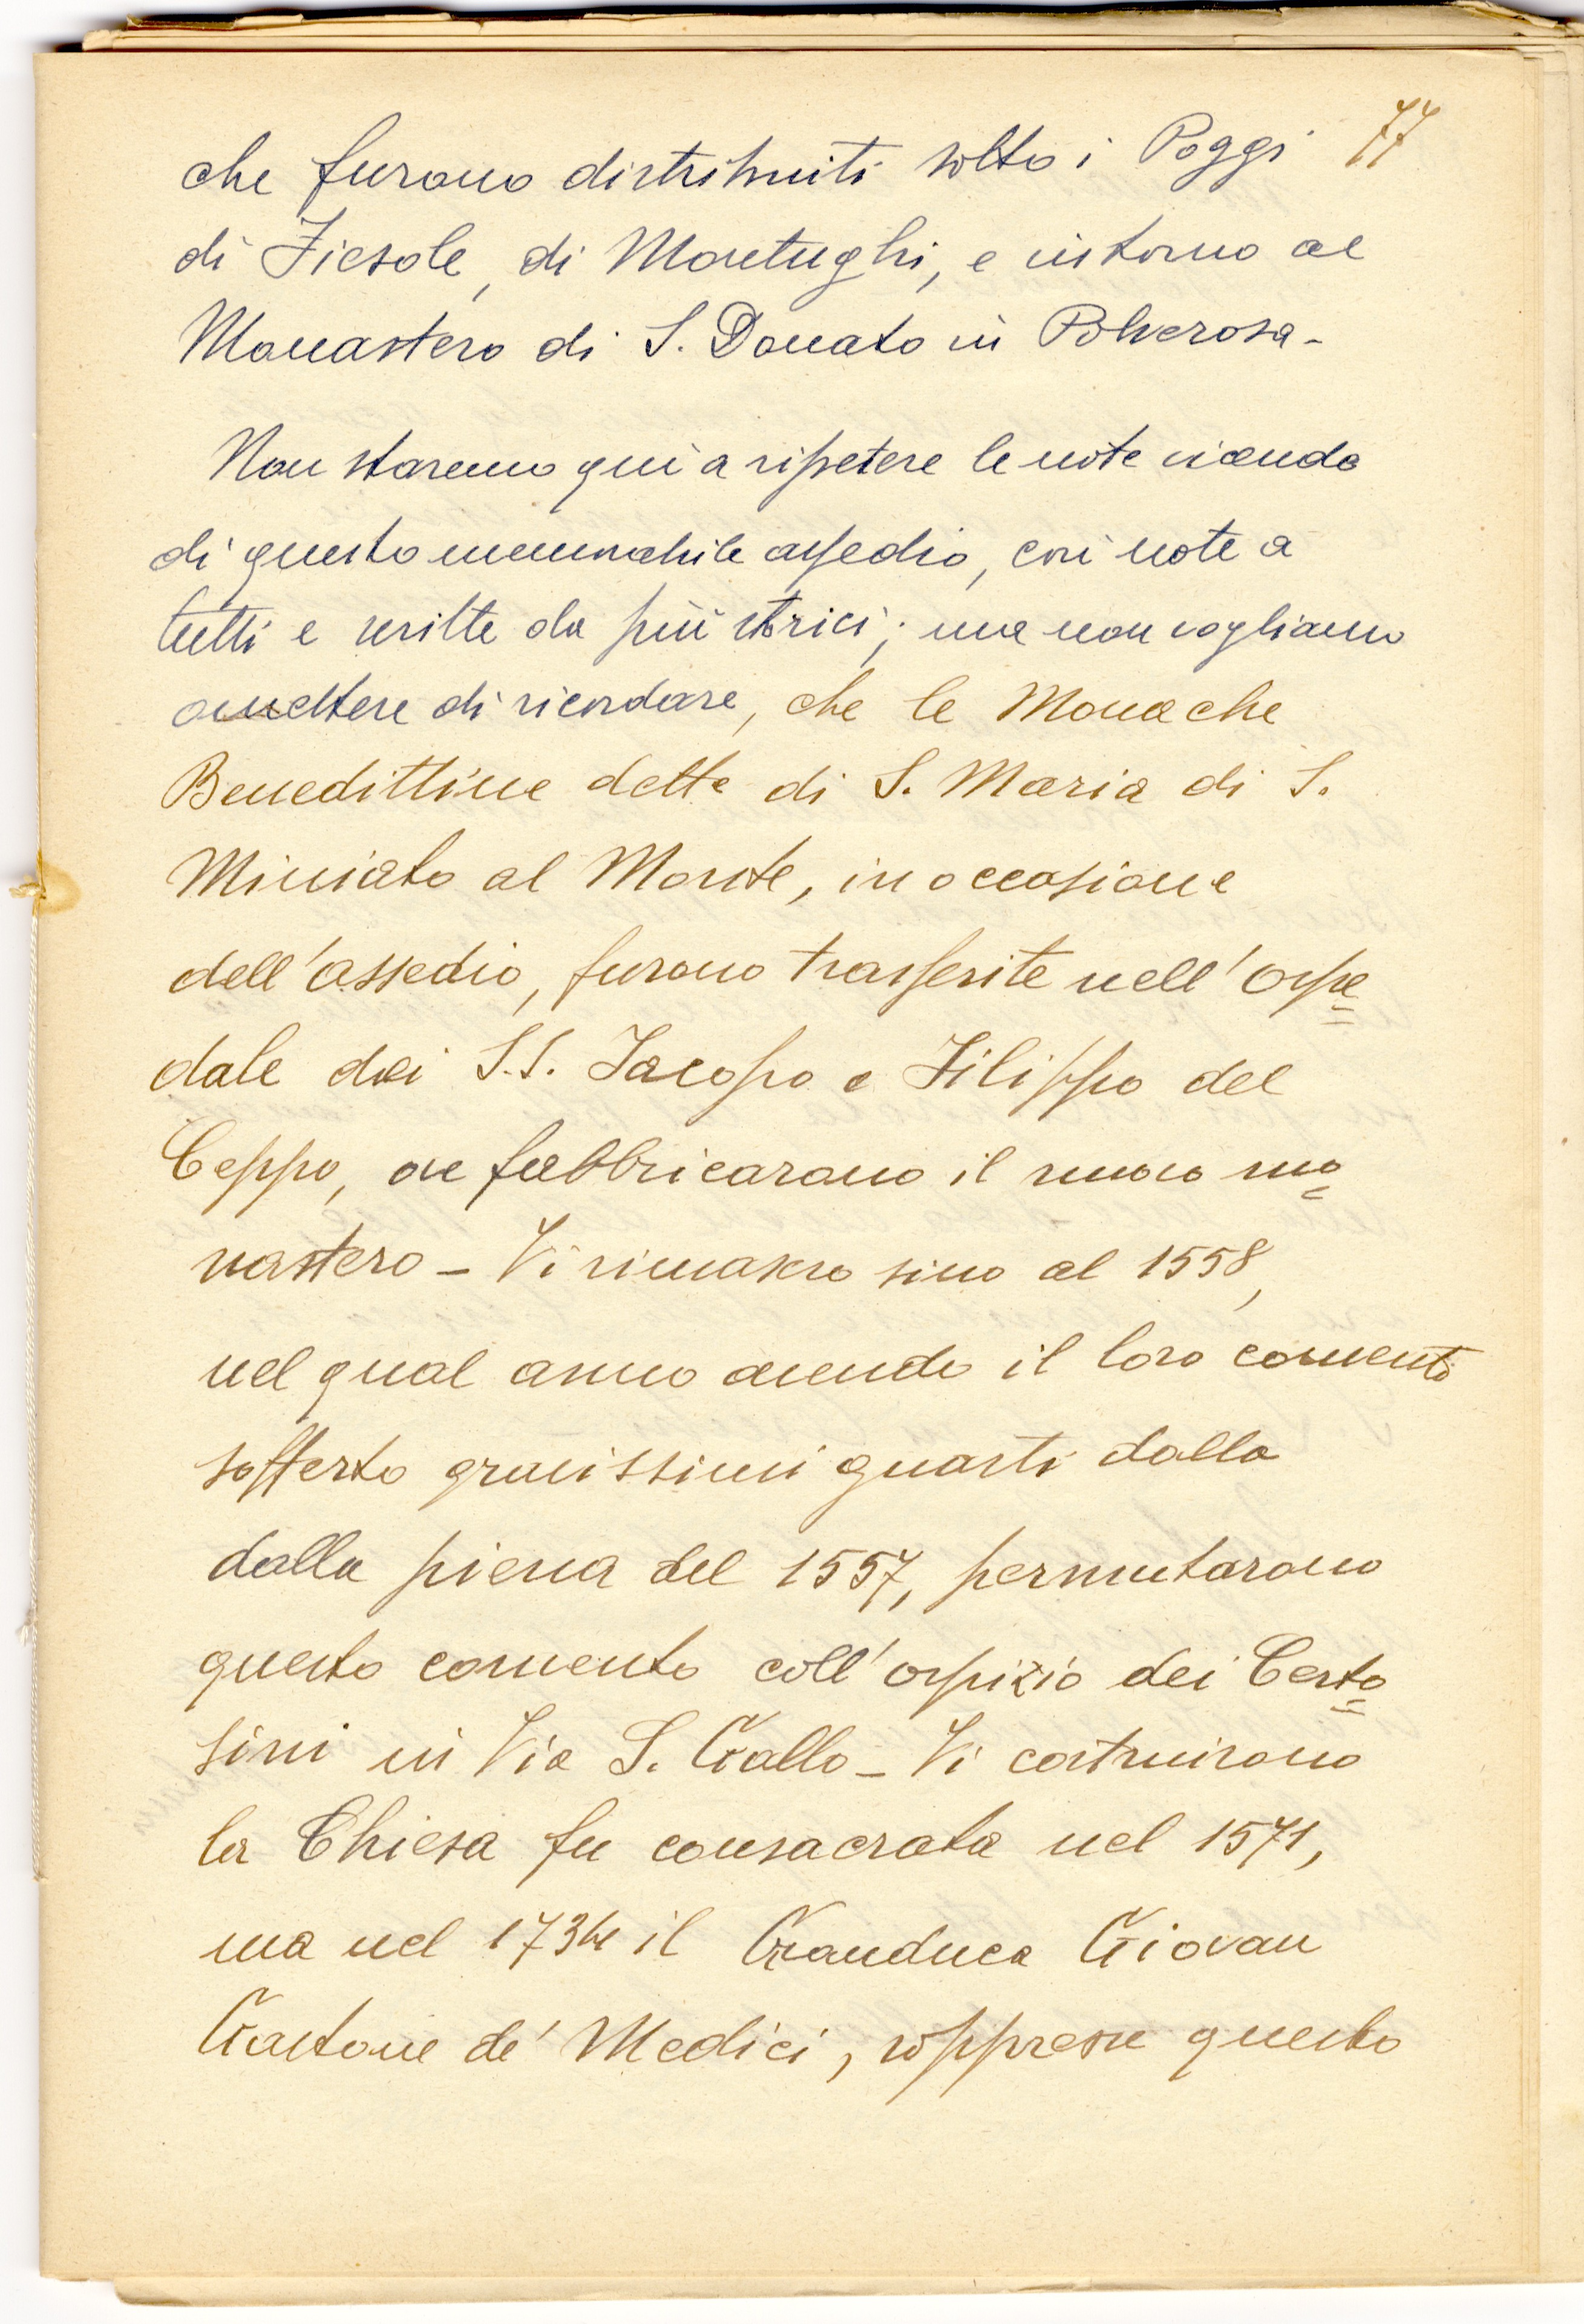 77
che furono distribuiti sotto i Poggi
di Fiesole, di Montughi, e intorno al
Monastero di S. Donato in Polverosa -
Non staremo qui a ripetere le note vicende
di questo memorabile assedio, così note a
tutti e scritte da più storici; ma non vogliamo
omettere di ricordare, che le Monache
Benedittine dette di S. Maria di S.
Miniato al Monte, in occasione
dell'assedio, furono trasferite nell'Ospe=
dale dei S.S. Jacopo e Filippo del
Ceppo, ove fabbricarono il nuovo mo=
nastero - Vi rimasero sino al 1558,
nel qual anno avendo il loro convento
sofferto gravissimi guasti dalla
dalla piena del 1557, permutarono
questo convento coll'ospizio dei Certo=
sini in Via S. Gallo - Vi costruirono
la Chiesa fu consacrata nel 1571,
ma nel 1734 il Granduca Giovan
Gastone de' Medici, soppresse questo